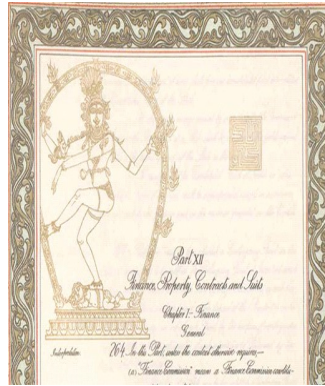 Part XII
Finance, Property, Contracts and Suits
Chapter I.- Finance
General
Interpretation. 264. In this Part, unless the context otherwise requires,—
(a) "Finance Commission" means a Finance Commission constitu-